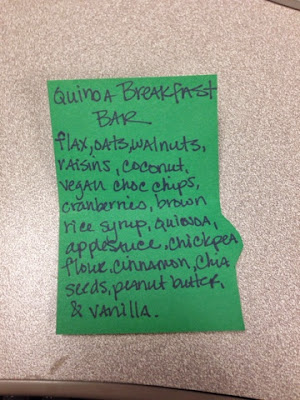 Quinoa Breakfast
BAR
flax, oats, walnuts,
raisins, coconut,
vegan choc chips,
cranberries, brown
rice syrup, quinoa,
applesauce, chickpea
flour, cinnamon, chia
seeds, peanut butter,
& vanilla.